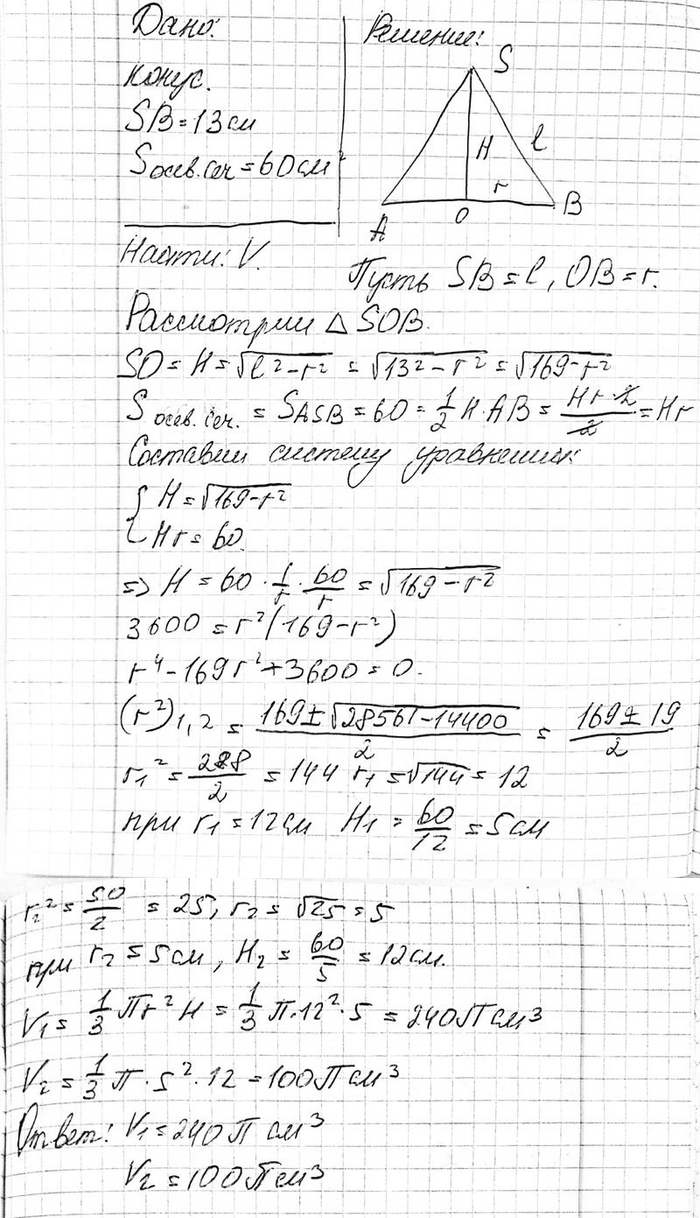 Дано:
конус.
SB = 13 см
Sосев.сеч = 60 см²
Найти: V.
Решение:
S
H
l
r
A
O
B
Пусть SB = l, OB = r.
Рассмотрим △ SOB.
SO = H = √(l² - r²) = √(13² - r²) = √(169 - r²)
S осев. сеч. = SASB = 60 = 1/2 H · AB = (Hr · 2)/2 = Hr
Составим систему уравнений:
{ H = √(169 - r²)
Hr = 60.
=> H = 60 · 1/r · 60/r = √(169 - r²)
3600 = r²(169 - r²)
r⁴ - 169r² + 3600 = 0.
(r²)1,2 = (169 ± √(28561 - 14400))/2 = (169 ± 19)/2
r1² = 288/2 = 144 r1 = √144 = 12
при r1 = 12 см H1 = 60/12 = 5 см
r2² = 50/2 = 25, r2 = √25 = 5
при r2 = 5 см, H2 = 60/5 = 12 см.
V1 = 1/3 Пr² H = 1/3 П · 12² · 5 = 240П см³
V2 = 1/3 П · 5² · 12 = 100П см³
Ответ: V1 = 240 П см³
V2 = 100П см³